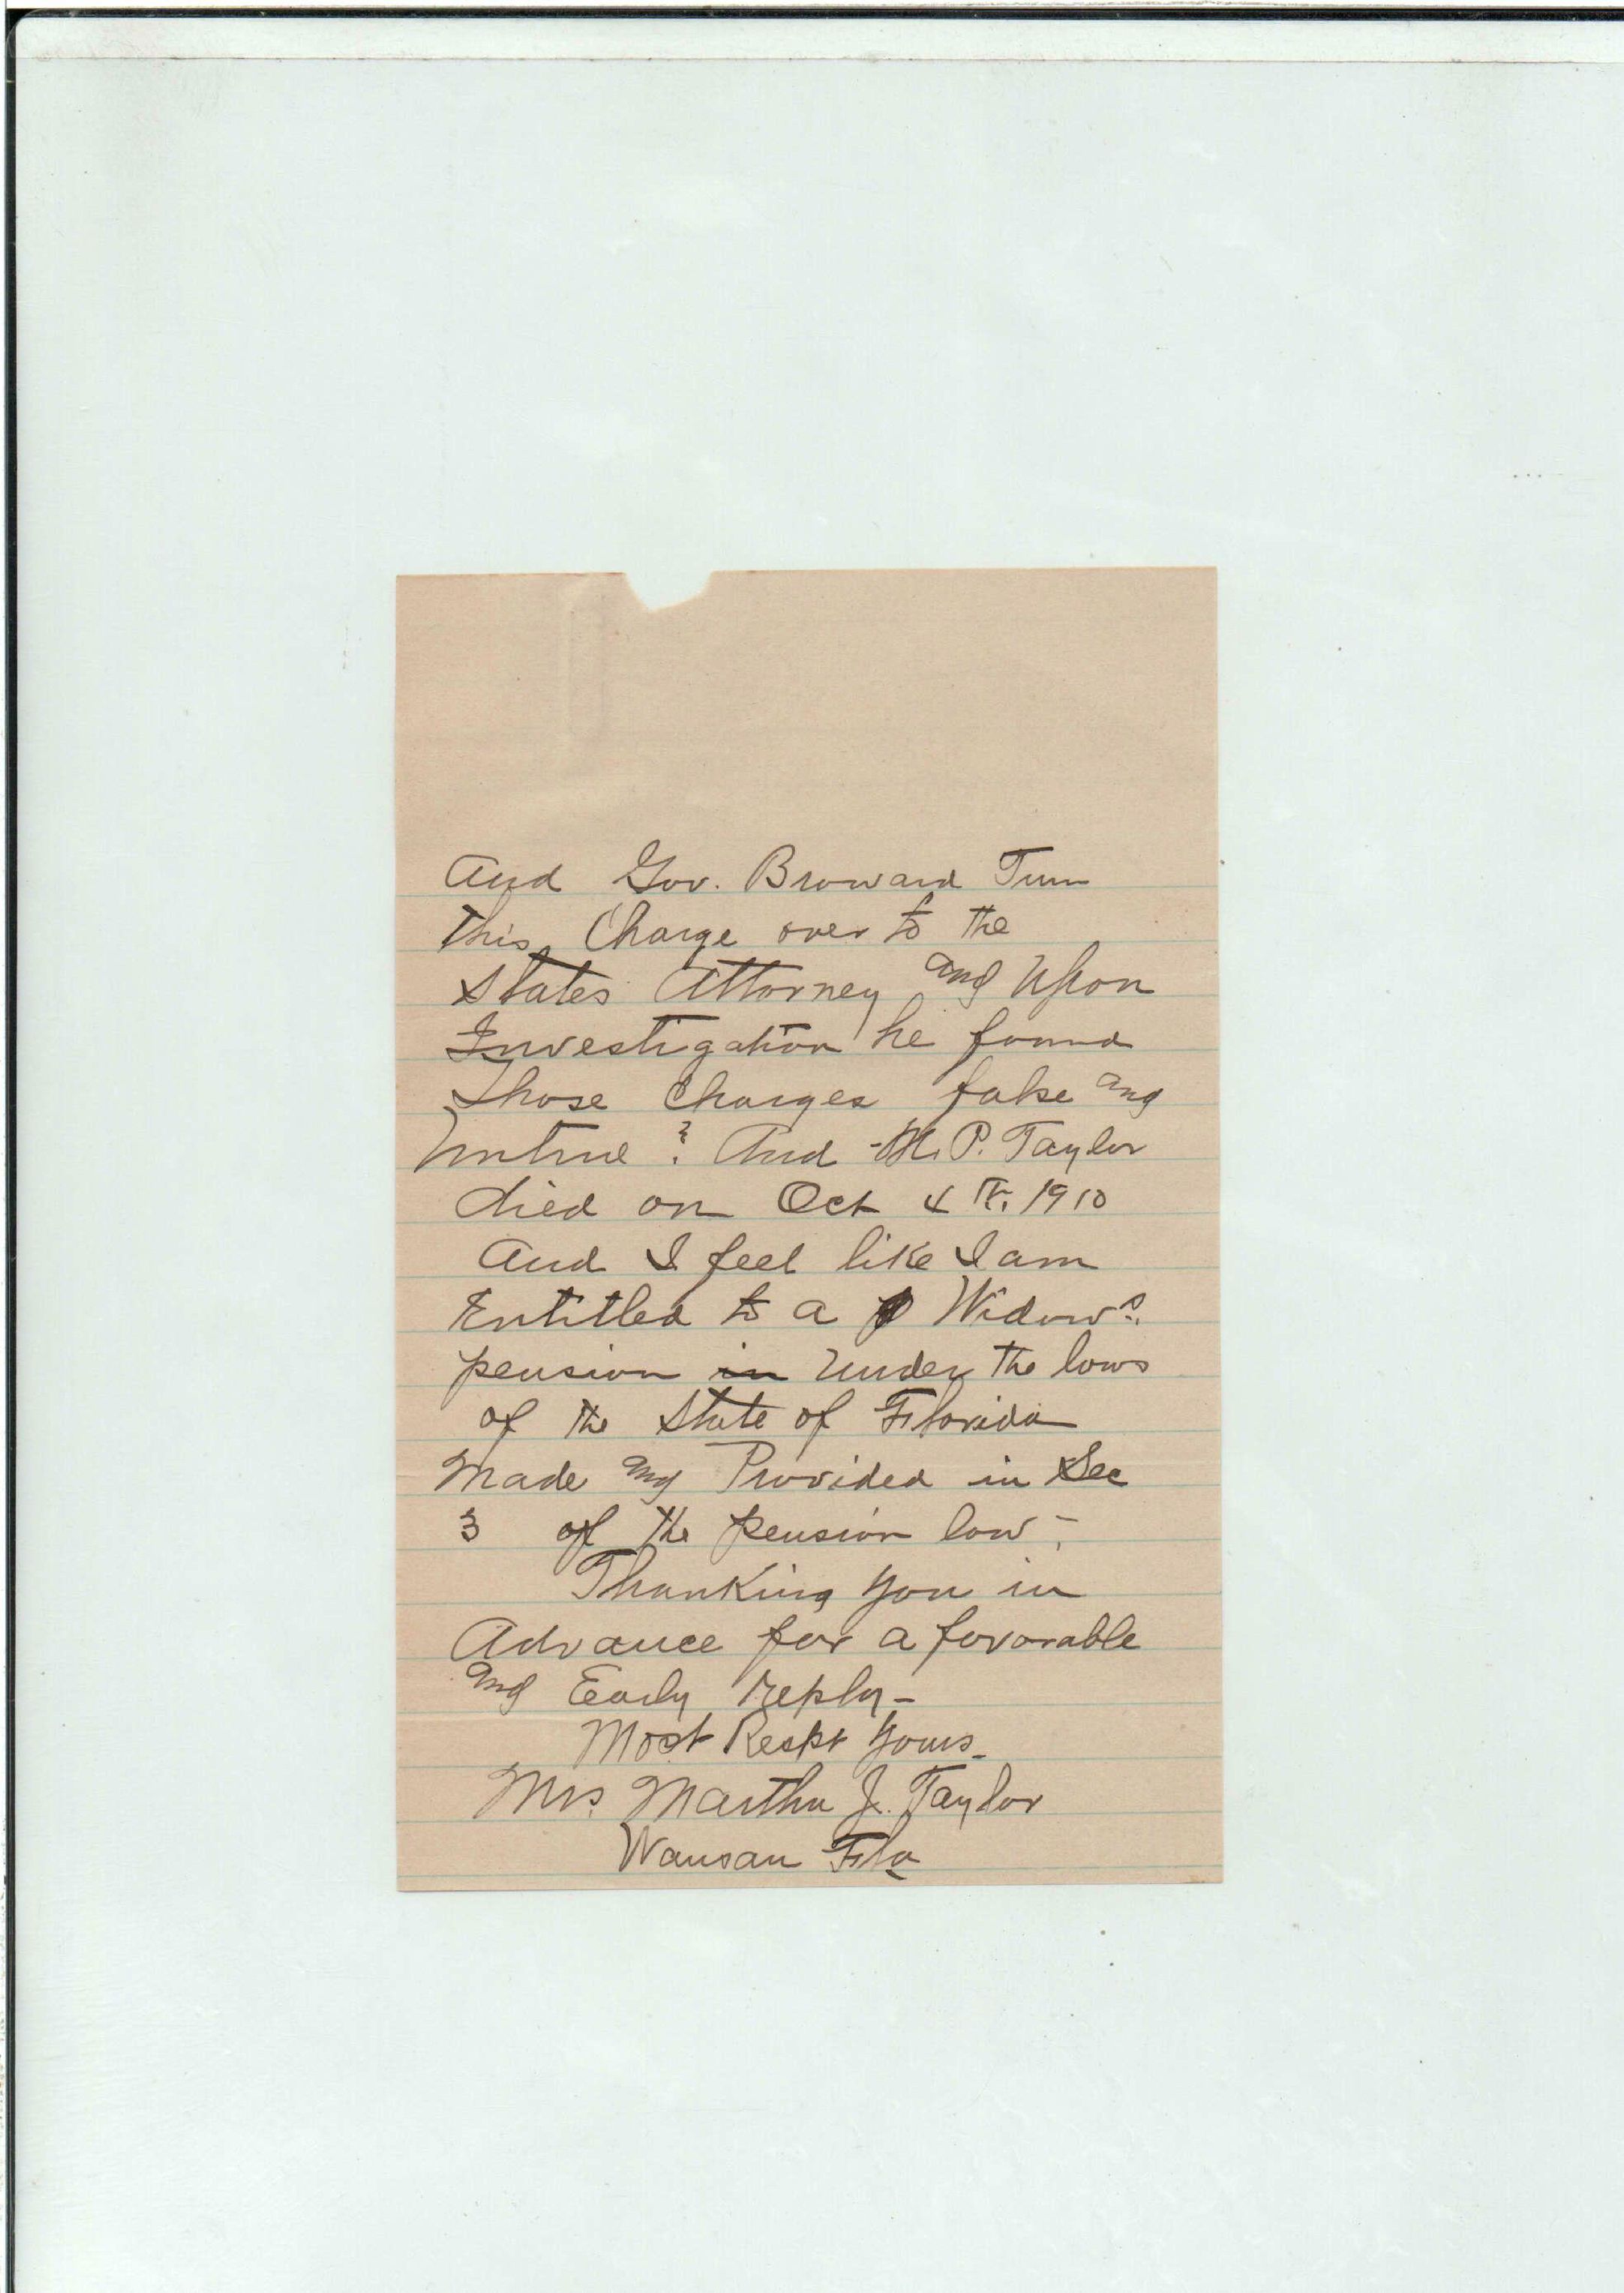 And Gov. Broward Turn
this Charge over to the
States Attorney and Upon
Investigation he found
those Charges false and
Untrue ; And M. P. Taylor
died on Oct 4th. 1910
And I feel like I am
Entitled to a Widow's
pension in Under the laws
of the State of Florida
Made and Provided in Sec
3 of the pension law -
Thanking you in
Advance for a favorable
and Early reply -
Most Respt yours
Mrs. Martha J. Taylor
Wausau Fla